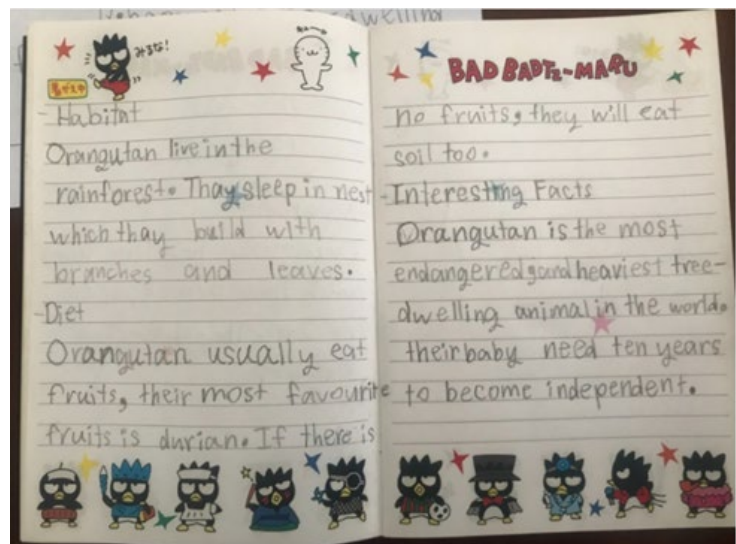 みるな!
- Habitat
Orangutan live in the
rainforest. Thay sleep in nest
which thay build with
branches and leaves.
- Diet
Orangutan usually eat
fruits, their most favourite
fruits is durian. If there is
BAD BADTZ-MARU
no fruits, they will eat
soil too.
- Interesting Facts
Orangutan is the most
endangered and heaviest tree-
dwelling animal in the world.
their baby need ten years
to become independent.